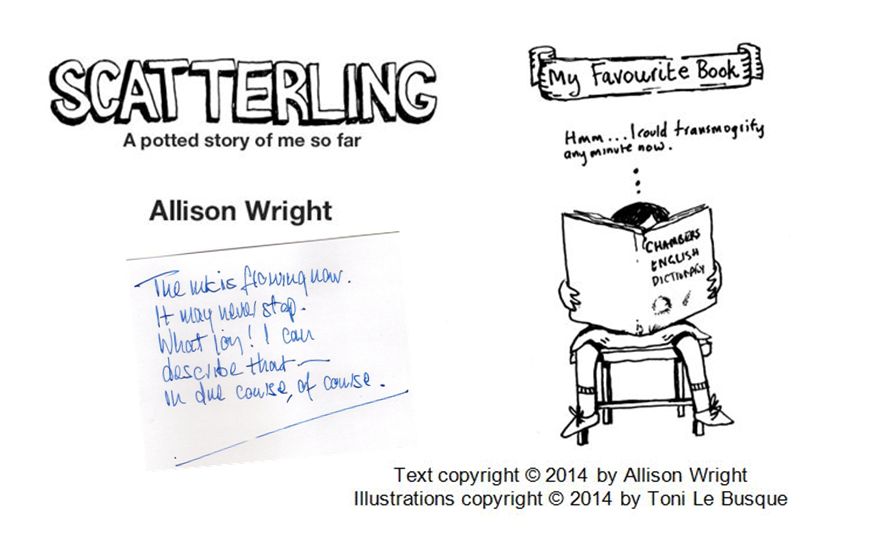 SCATTERLING
A potted story of me so far
Allison Wright
The ink is flowing now.
It may never stop.
What joy! I can
describe that —
in due course, of course.
My Favourite Book
Hmm...I could transmogrify
any minute now.
CHAMBERS
ENGLISH
DICTIONARY
Text copyright © 2014 by Allison Wright
Illustrations copyright © 2014 by Toni Le Busque